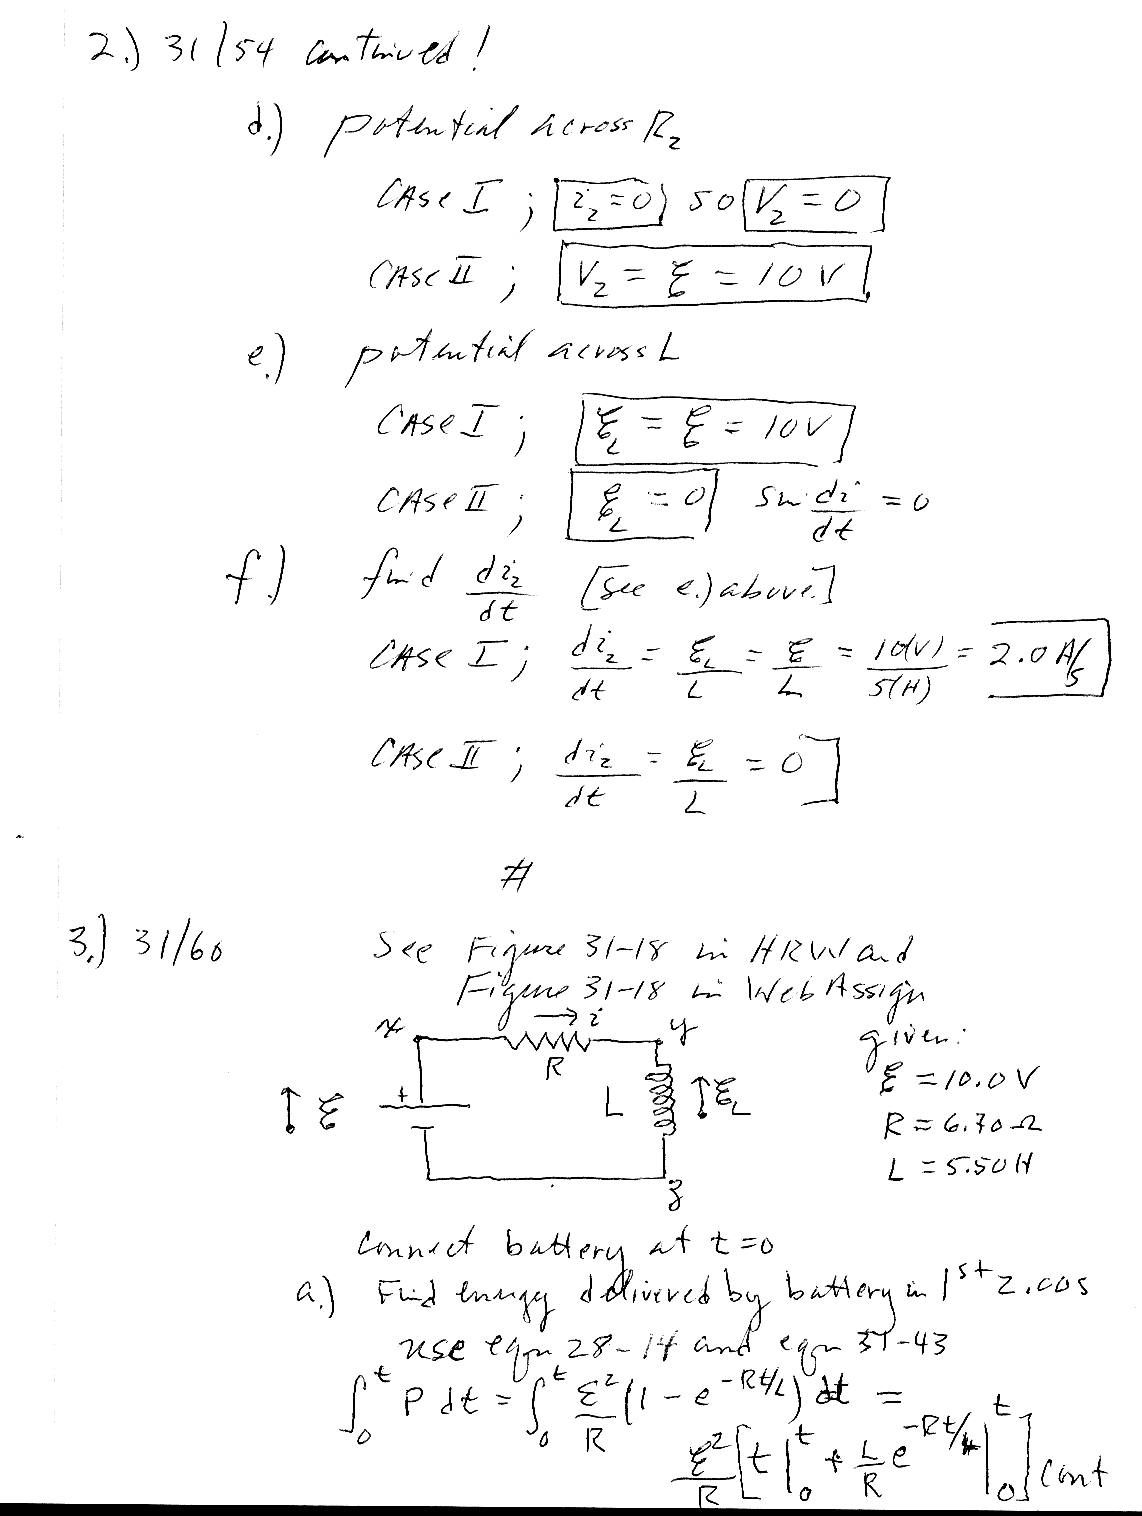 2.) 31/54 continued!
d.) potential across R₂
CASE I ; i₂=0 so V₂ = 0
CASE II ; V₂ = ℰ = 10 V
e.) potential across L
CASE I ; ℰ_L = ℰ = 10V
CASE II ; ℰ_L = 0 sin di/dt = 0
f.) find di₂/dt [see e.) above.]
CASE I ; di₂/dt = ℰ_L/L = ℰ/L = 10(V)/5(H) = 2.0 A/s
CASE II ; di₂/dt = ℰ_L/L = 0
#
3.) 31/60 See Figure 31-18 in HRW and
Figure 31-18 in WebAssign
x R → i y
ℰ + L ℰ_L
z
given:
ℰ = 10.0 V
R = 6.70 Ω
L = 5.50 H
Connect battery at t=0
a.) Find energy delivered by battery in 1st 2.00s
use eqn 28-14 and eqn 31-43
∫₀ᵗ P dt = ∫₀ᵗ ℰ²/R (1 - e^(-Rt/L)) dt =
ℰ²/R [t |₀ᵗ + L/R e^(-Rt/L) |₀ᵗ] cont